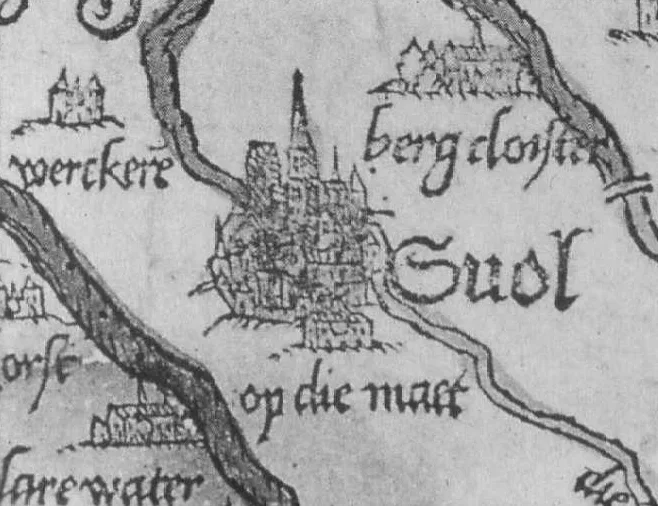 werckere
berg cloyster
Suol
orst
op die maet
lare water
die